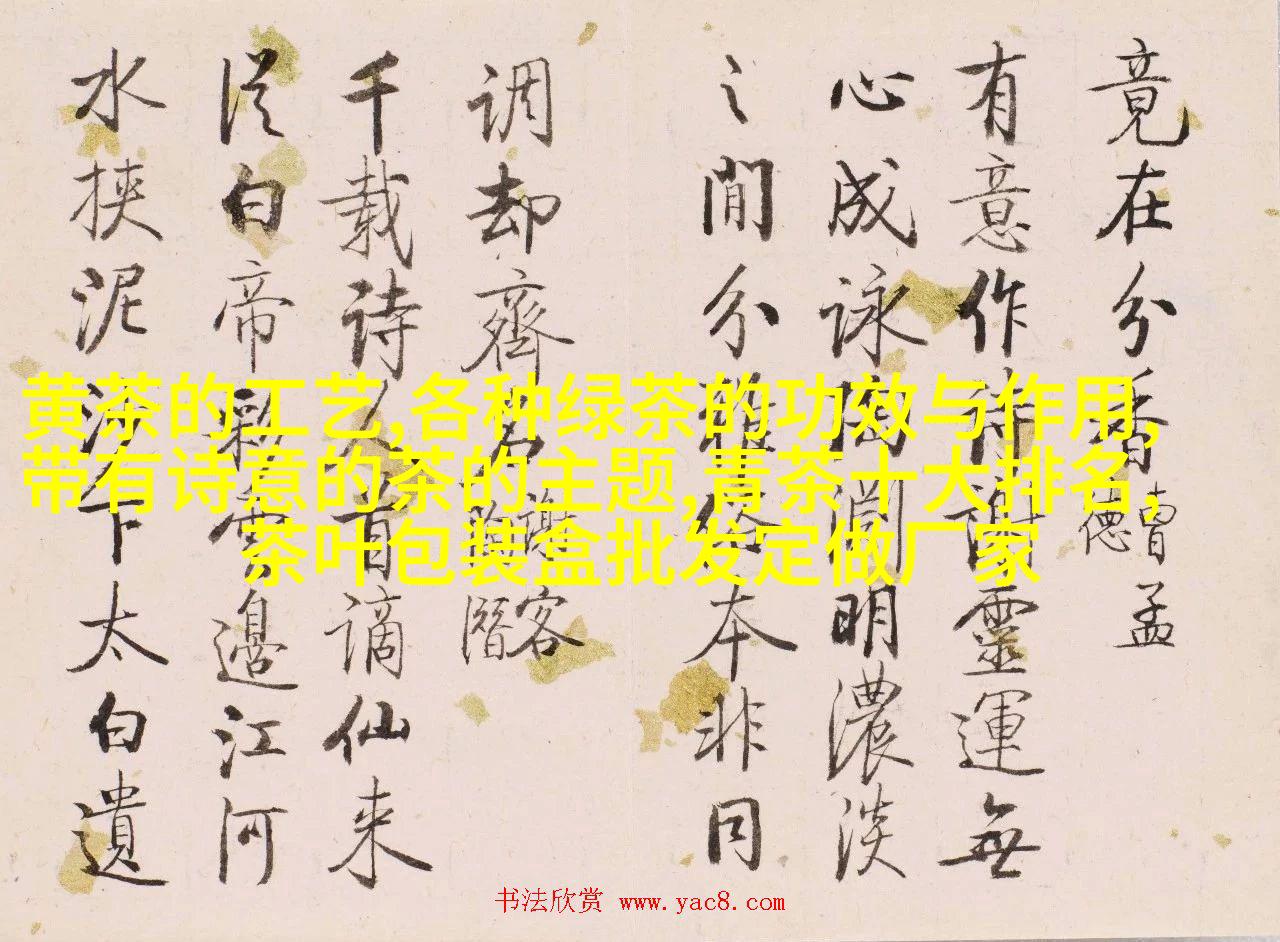 竟在分香 曹孟德
有意作诗谢靈運無
心成詠陶淵明濃淡
之間分雅俗本非同
调却齊名 謝客 陶潛
千载诗人首谪仙来
從白帝彩雲邊江河
水挟泥沙下太白遺
黄茶的工艺,各种绿茶的功效与作用,
带有诗意的茶的主题,青茶十大排名,
茶叶包装盒批发定做厂家
书法欣赏 www.yac8.com